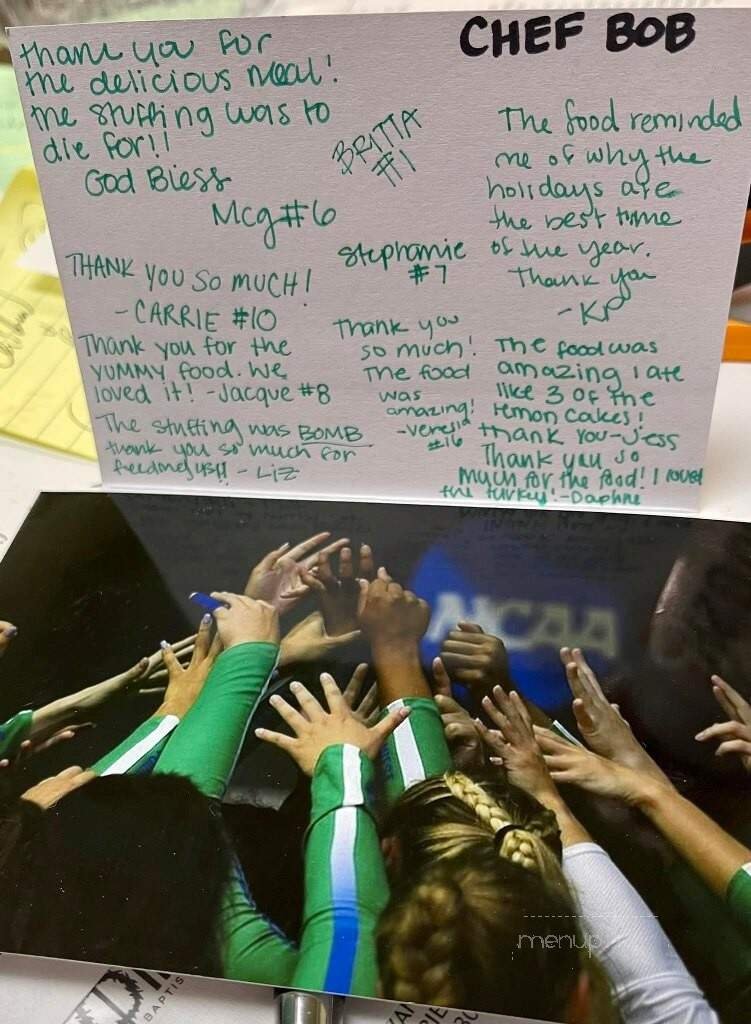 CHEF BOB
thank you for
the delicious meal!
the stuffing was to
die for!!
God Bless
Mcg #6
BRITTA
#1
The food reminded
me of why the
holidays are
the best time
of the year.
Thank you
- KP
Stephanie
#7
THANK YOU SO MUCH!
- CARRIE #10
Thank you for the
YUMMY food. We
loved it! - Jacque #8
Thank you
so much!
The food
was
amazing!
#16
The food was
amazing I ate
like 3 of the
lemon cakes!
thank you - Jess
The stuffing was BOMB
thank you so much for
feeding us!! - Liz
Thank you so
much for the food! I loved
the turkey! - Daphne
NCAA
menup
BAPTIS